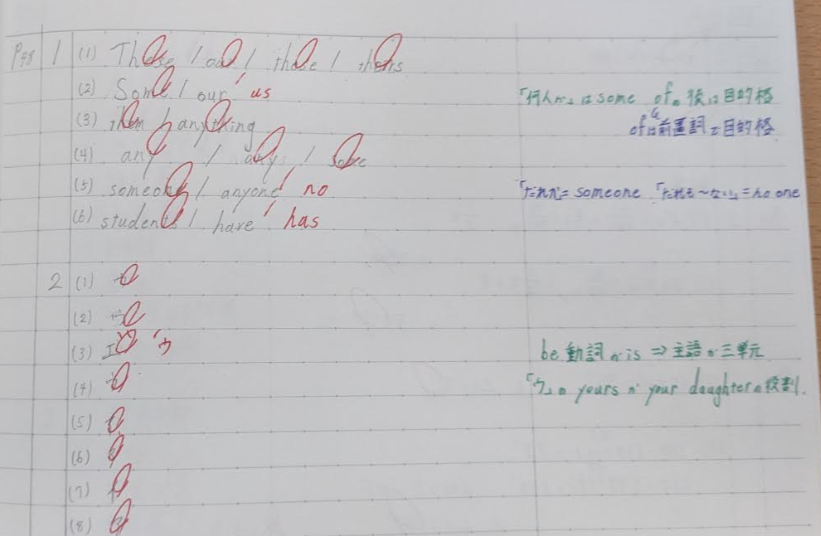 P98 1 (1) These / our / those / theirs
(2) Some / our us
「何人か」は some of の後は目的格
(3) them / anything
ofは前置詞で目的格
(4) any / any / some
(5) someone / anyone no
「だれか」= someone 「だれも〜ない」= no one
(6) students / have has
2 (1)
(2)
(3) エ ウ
be 動詞が is ⇒ 主語が三単元
(4)
「ウ」の yours が your daughterの役割.
(5)
(6)
(7)
(8)